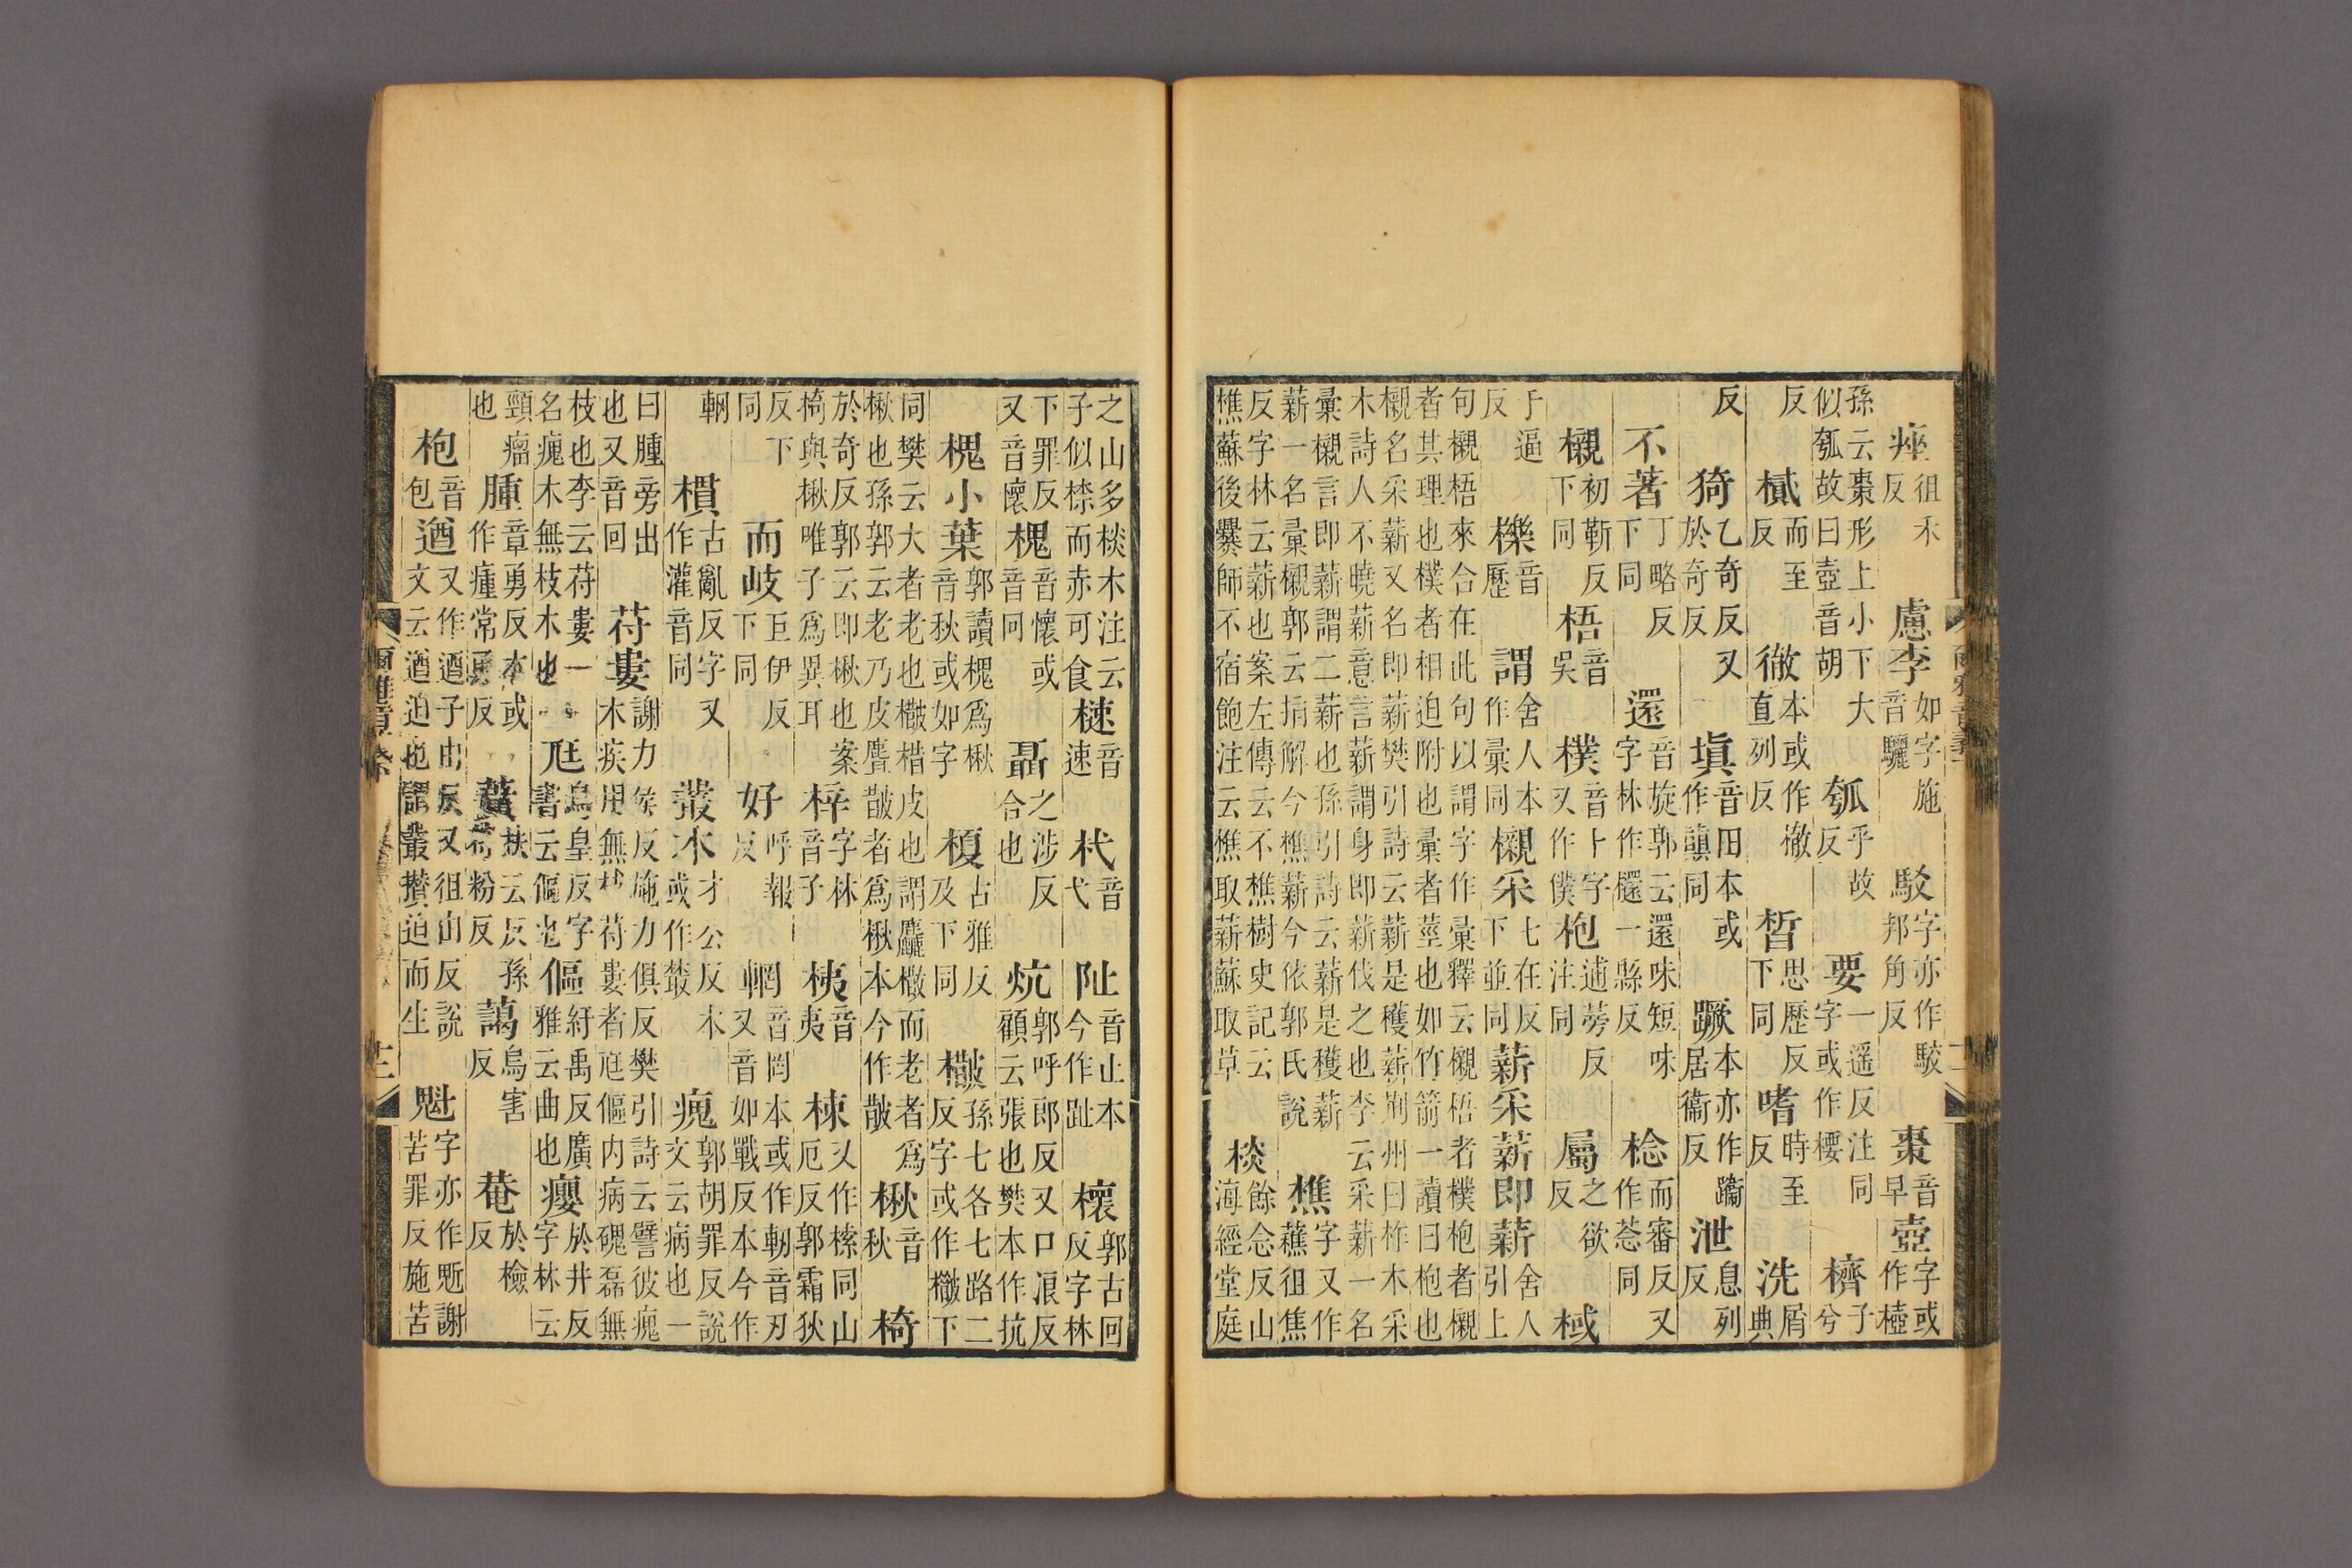 痤徂禾反慮李如字施音驪駁字亦作駮邦角反棗音早壺字或作樻
孫云棗形上小下大似瓠故曰壺音胡瓠乎故反要一遥反注同字或作㮌櫅子兮
反樲而至反徹本或作㯙直列反晳思歷反下同嗜時至反洗屑典
反猗乙奇反又於奇反塡音田本或作蹎同蹶本亦作䠣居衞反泄息列反
不著丁略反下同還音旋郭云還味短味字林作檈一縣反棯而審反又作荵同
櫬初靳反下同梧音吳樸音卜字又作僕枹逋茅反注同屬之欲反棫
于逼反櫟音歷謂舍人本作彙同櫬采七在反下並同薪采薪即薪舍人引上
句櫬梧來合在此句以謂字作彙釋云櫬梧者樸枹者櫬者其理也樸者相迫附也彙者莖也如竹箭一讀曰枹也
櫬名采薪又名即薪樊引詩云薪是穫薪荆州曰柞木采木詩人不曉薪意言薪謂身即薪伐之也李云采薪一名
彙櫬言即薪謂二薪也孫引詩云薪是穫薪薪一名彙櫬郭云指解今樵薪今依郭氏說樵字又作藮徂焦
反字林云薪也案左傳云不樵樹史記云樵蘇後爨師不宿飽注云樵取薪蘇取草棪餘念反山海經堂庭
之山多棪木注云子似㮈而赤可食樕音速杙音弋阯音止本今作趾櫰郭古回反字林
下罪反又音懷槐音懷或音回聶之涉反合也炕郭呼郎反又口浪反顧云張也樊本作抗
槐小葉郭讀槐爲楸音秋或如字榎古雅反及下同㯔孫七各七路二反字或作㯔下
同樊云大者老也㯔楷皮也謂麤㯔而老者爲楸也孫郭云老乃皮麤皵者爲楸本今作皵楸音秋椅
於奇反郭云即楸也案椅與楸唯子爲異耳梓字林音子桋音夷楝又作㮨同山厄反郭霜狄
反下同而岐巨伊反下同好呼報反輞音罔本或作軔音刃又音如戰反本今作
輞樌古亂反字又作灌音同叢木才公反木或作藂瘣郭胡罪反說文云病也一
曰腫旁出也又音回苻婁謝力侯反施力俱反樊引詩云譬彼瘣木疾用無枝苻婁者尫傴内病磈磊無
枝也李云苻婁一名瘣木無枝木也尫烏皇反字書云傴也傴紆禹反廣雅云曲也癭於井反字林云
頸瘤也腫章勇反本或作瘇常勇反蕡扶云反孫粉反藹烏害反菴於檢反
枹音包遒又作逎子由反又徂由反說文云遒迫也謂叢攢迫而生魁字亦作䰎謝苦罪反施苦